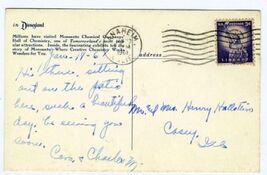 in Disneyland
Millions have visited Monsanto Chemical Company's
Hall of Chemistry, one of Tomorrowland's most
ular attractions. Inside, the fascinating exhibits tell the
story of Monsanto—Where Creative Chemistry Works
Wonders for You.
ANAHEIM
CALIF.
LIBERTY
3¢
address
Hi there, sitting
out on the patio
here, such a beautiful
day. be seeing you
soon.
Cora & Charles W.
Mr & Mrs. Henry
Casey,
Ill